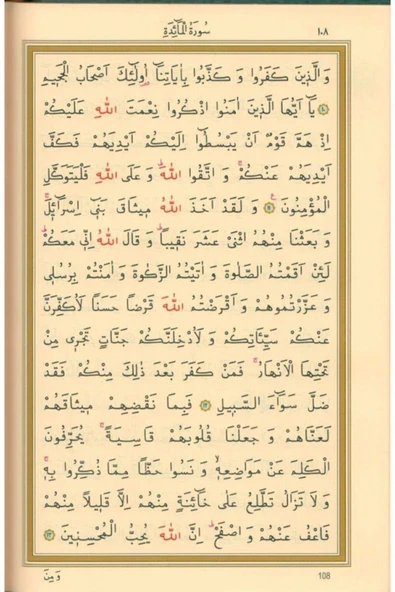 سُورَةُ الْمَائِدَةِ ١٠٨
وَ الَّذِينَ كَفَرُوا وَ كَذَّبُوا بِاٰيَاتِنَا اُولٰٓئِكَ اَصْحَابُ الْجَحِيمِ
﴿١٠﴾ يَٓا اَيُّهَا الَّذِينَ اٰمَنُوا اذْكُرُوا نِعْمَتَ اللّٰهِ عَلَيْكُمْ
اِذْ هَمَّ قَوْمٌ اَنْ يَبْسُطُٓوا اِلَيْكُمْ اَيْدِيَهُمْ فَكَفَّ
اَيْدِيَهُمْ عَنْكُمْ وَ اتَّقُوا اللّٰهَ وَ عَلَى اللّٰهِ فَلْيَتَوَكَّلِ
الْمُؤْمِنُونَ ﴿١١﴾ وَ لَقَدْ اَخَذَ اللّٰهُ مِيثَاقَ بَنِٓي اِسْرَٓائِلَ
وَ بَعَثْنَا مِنْهُمُ اثْنَيْ عَشَرَ نَقِيبًا وَ قَالَ اللّٰهُ اِنِّي مَعَكُمْ
لَئِنْ اَقَمْتُمُ الصَّلٰوةَ وَ اٰتَيْتُمُ الزَّكٰوةَ وَ اٰمَنْتُمْ بِرُسُلِي
وَ عَزَّرْتُمُوهُمْ وَ اَقْرَضْتُمُ اللّٰهَ قَرْضًا حَسَنًا لَاُكَفِّرَنَّ
عَنْكُمْ سَيِّئَاتِكُمْ وَ لَاُدْخِلَنَّكُمْ جَنَّاتٍ تَجْرِي مِنْ
تَحْتِهَا الْاَنْهَارُ فَمَنْ كَفَرَ بَعْدَ ذٰلِكَ مِنْكُمْ فَقَدْ
ضَلَّ سَوَٓاءَ السَّبِيلِ ﴿١٢﴾ فَبِمَا نَقْضِهِمْ مِيثَاقَهُمْ
لَعَنَّاهُمْ وَ جَعَلْنَا قُلُوبَهُمْ قَاسِيَةً يُحَرِّفُونَ
الْكَلِمَ عَنْ مَوَاضِعِهِ وَ نَسُوا حَظًّا مِمَّا ذُكِّرُوا بِهِ
وَ لَا تَزَالُ تَطَّلِعُ عَلٰى خَٓائِنَةٍ مِنْهُمْ اِلَّا قَلِيلًا مِنْهُمْ
فَاعْفُ عَنْهُمْ وَ اصْفَحْ اِنَّ اللّٰهَ يُحِبُّ الْمُحْسِنِينَ ﴿١٣﴾
وَ مِنَ 108